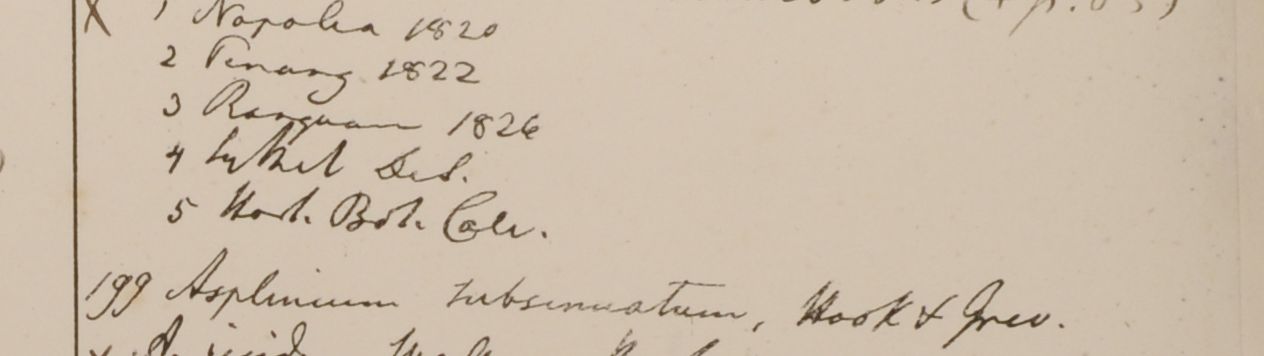 1 Napalia 1820
2 Penang 1822
3 Rangoon 1826
4 Sylhet DeS.
5 Hort. Bot. Calc.
199 Asplenium subsinuatum, Hook & Grev.